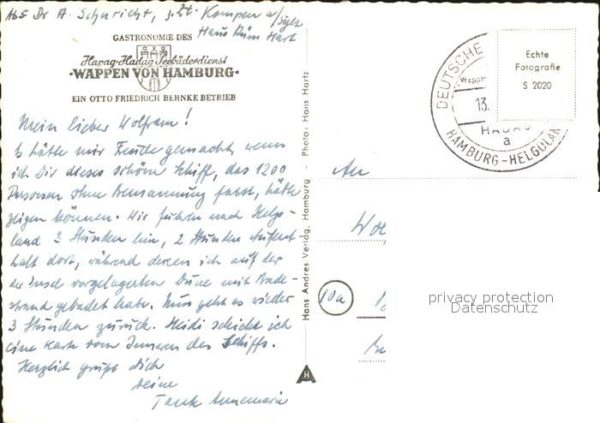 Abs Dr A. Schuricht, z.Zt. Kampen a/Sylt
Haus Rüm Hart
GASTRONOMIE DES
Hapag-Hadag Seebäderdienst
-WAPPEN VON HAMBURG-
EIN OTTO FRIEDRICH BEHNKE BETRIEB
Mein lieber Wolfram!
Es hätte mir Freude gemacht, wenn
ich Dir dieses schöne Schiff, das 1200
Personen ohne Bemannung fasst, hätte
zeigen können. Wir fuhren nach Helgo-
land 3 Stunden hin, 2 Stunden Aufent
halt dort, während deren ich auf der
der Insel vorgelagerten Düne mit Bade-
strand gebadet habe. Nun geht es wieder
3 Stunden zurück. Heidi schickt ich
eine Karte vom Inneren des Schiffs.
Herzlich grüsst Dich
deine
Tante Annemarie
Hans Andres Verlag, Hamburg - Photo: Hans Hartz
H
DEUTSCHE
Wappen
13.
HADAG
a
HAMBURG-HELGOLAN
Echte
Fotografie
S 2020
An
Wol
10a
privacy protection
Datenschutz